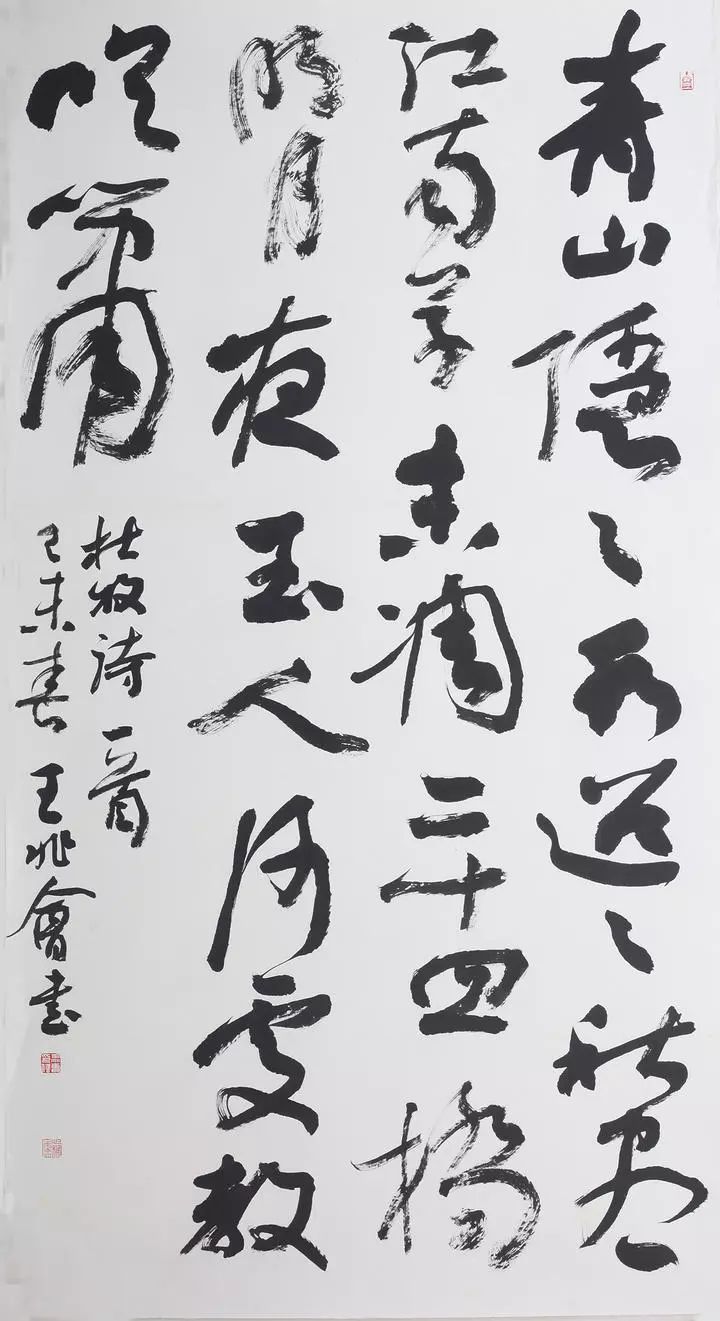 青山隱々水迢々秋尽
江南草未凋二十四橋
明月夜玉人何處教
吹簫
杜牧詩一首
己未春王兆會書